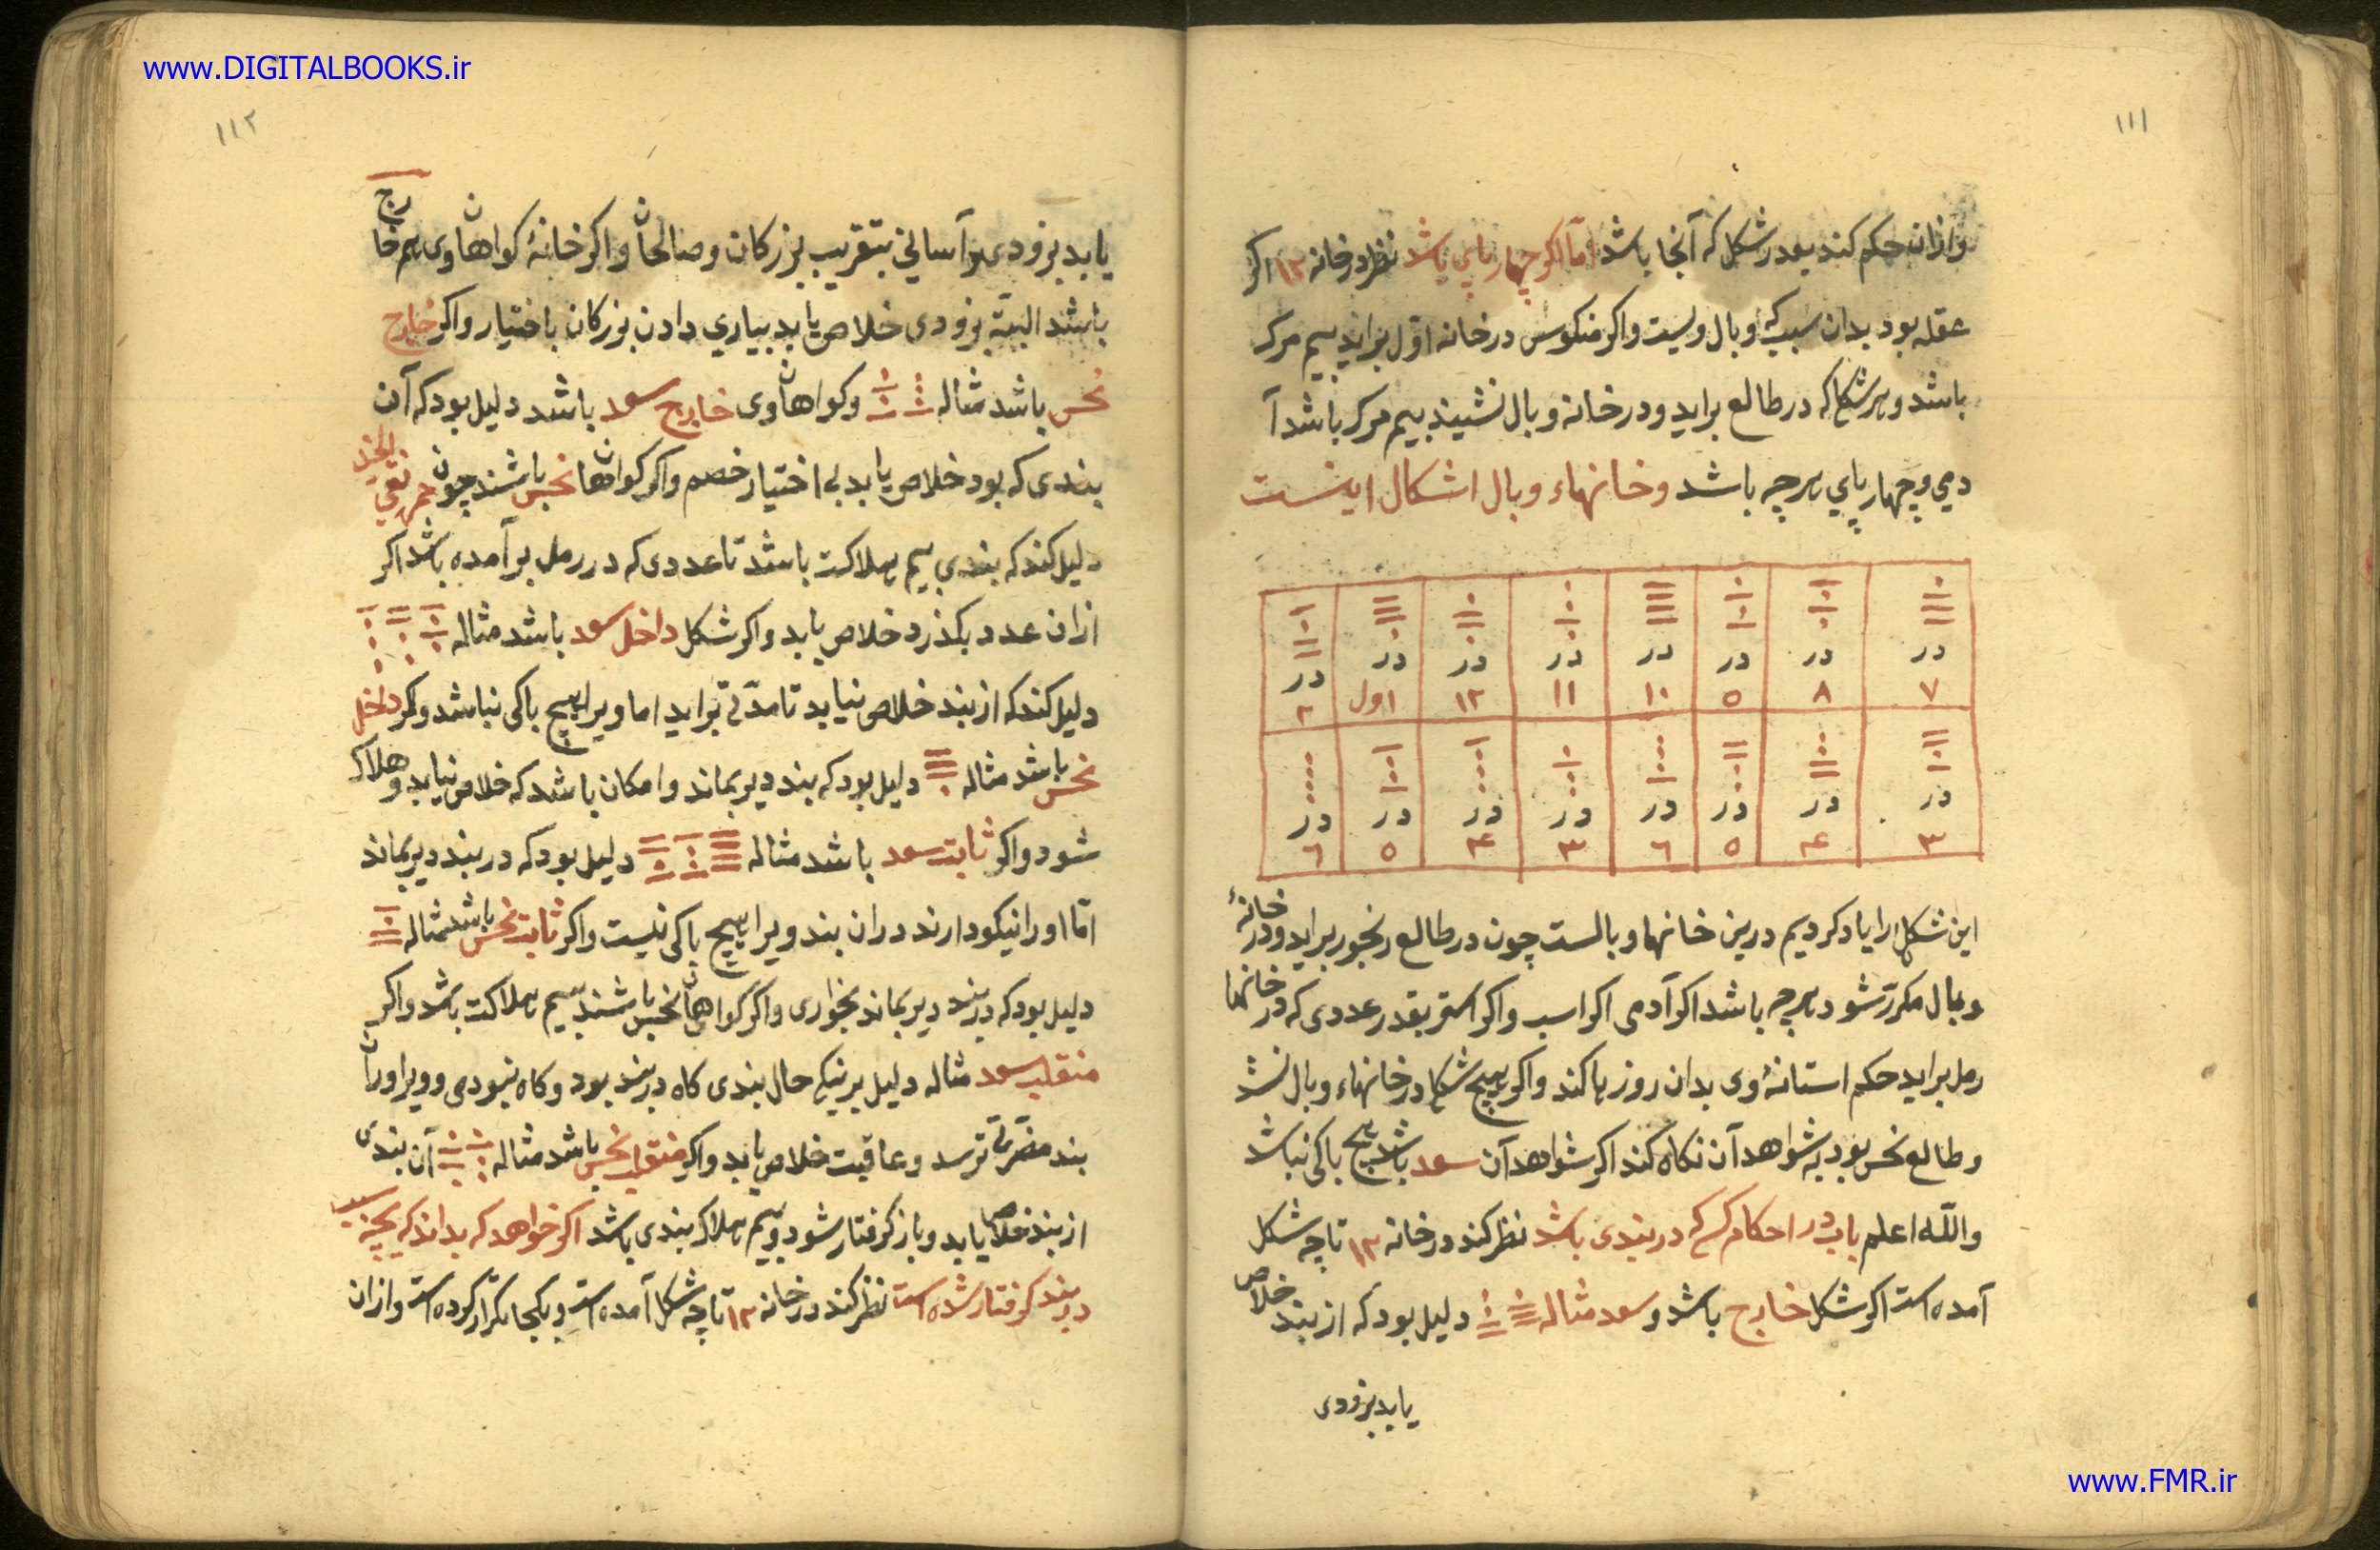 www.DIGITALBOOKS.ir
١١١
وازان حکم کند بود در شکل که آنجا باشد اما اکر چهارپاي باشد نظر در خانه ١٢ اکر
عقله بود بدان سبب که وبال ویست واکر منکوس در خانه اول براید بیم مرک
باشد و هر شکل که در طالع براید و در خانه وبال نشیند بیم مرک باشد آ
دمي و چهارپاي هرچه باشد و خانهاء وبال اشکال اینست
در در در در در در در در
٧ ٨ ٥ ١٠ ١١ ١٢ اول ٢
در در در در در در در در
٣ ۴ ٥ ٦ ٣ ۴ ٥ ٦
این شکل را یاد کردیم درین خانها وبالست چون در طالع رنجور براید و در خانهٔ
وبال مکرر شود هرچه باشد اکر آدمی اکر اسب واکر استر بقدر عددی که در خانها
رمل براید حکم استانهٔ وی بدان روز رها کند واکر هیچ شکل در خانهاء وبال نشد
وطالع نحس بود به شواهد آن نکاه کند اکر شواهد آن سعد باشد هیچ باکی نباشد
والله اعلم باب در احکام کسی که در بندی باشد نظر کند در خانه ١٢ تا چه شکل
آمده است اکر شکل خارج باشد و سعد مثاله دلیل بود که از بند خلاص
یابد بزودی
١١٢
یابد بزودی و آسانی بتقریب بزرکان و صالحان و اکر خانهٔ کواهان وی هم خارج
باشد البته بزودی خلاص یابد بیاري دادن بزرکان باختیار واکر خارج
نحس باشد مثاله وکواهان وی خارج سعد باشد دلیل بود که آن
بندی که بود خلاص یابد بی اختیار خصم واکر کواهان نحس باشند چون حمره نقي الخد
دلیل کند که بندی بیم هلاکت باشد تا عددی که در رمل برآمده باشد اکر
ازان عدد بکذرد خلاص یابد واکر شکل داخل سعد باشد مثاله
دلیل کند که از بند خلاص نیابد تا مدتی براید اما ویرا هیچ باکی نباشد وکر داخل
نحس باشد مثاله دلیل بود که بند دیر بماند و امکان باشد که خلاص نیابد و هلاک
شود واکر ثابت سعد باشد مثاله دلیل بود که در بند دیر بماند
اما اورا نیکو دارند دران بند ویرا هیچ باکی نیست واکر ثابت نحس باشد مثاله
دلیل بود که در بند دیر بماند بخواری واکر کواهان نحس باشند بیم هلاکت باشد واکر
منقلب سعد مثاله دلیل بر نیکی حال بندی کاه در بند بود و کاه نبودی و ویرا وران
بند مضرتی نرسد و عاقبت خلاص یابد واکر منقلب نحس باشد مثاله آن بندی
از بند خلاص یابد و باز کرفتار شود و بیم هلاک بندی باشد اکر خواهد که بداند که بچه سبب
در بند کرفتار شده است نظر کند در خانه ١٢ تا چه شکل آمده است و بکجا تکرار کرده است و ازان
www.FMR.ir